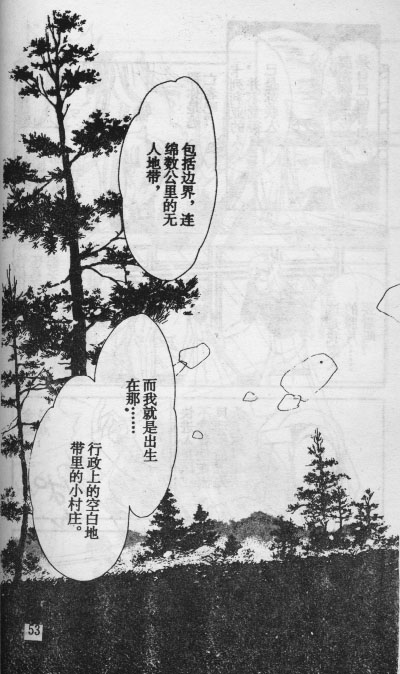 包括边界，连
绵数公里的无
人地带，
而我就是出生
在那……
行政上的空白地
带里的小村庄。
53